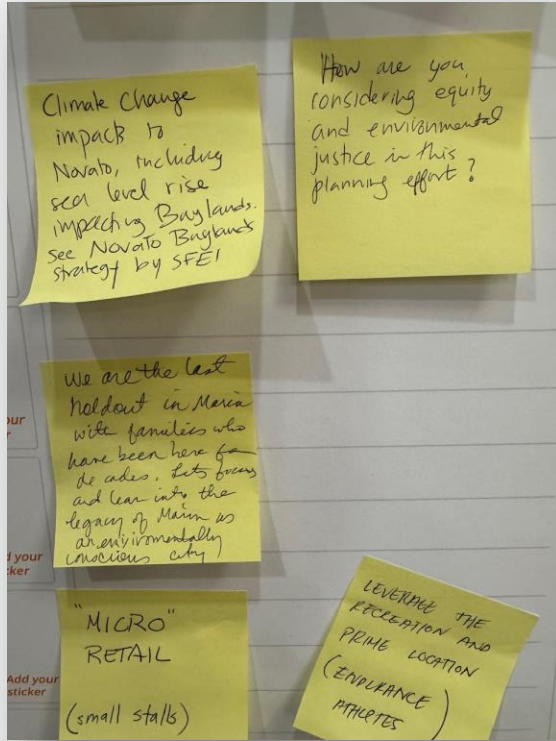 Climate Change
impacts to
Novato, including
sea level rise
impacting Baylands.
See Novato Baylands
strategy by SFEI
How are you
considering equity
and environmental
justice in this
planning effort?
We are the last
holdout in Marin
with families who
have been here for
decades. Lets focus
and lean into the
legacy of Marin as
an environmentally
conscious city
"MICRO"
RETAIL
(small stalls)
LEVERAGE THE
RECREATION AND
PRIME LOCATION
(ENDURANCE)
ATHLETES
your
r
d your
cker
Add your
sticker